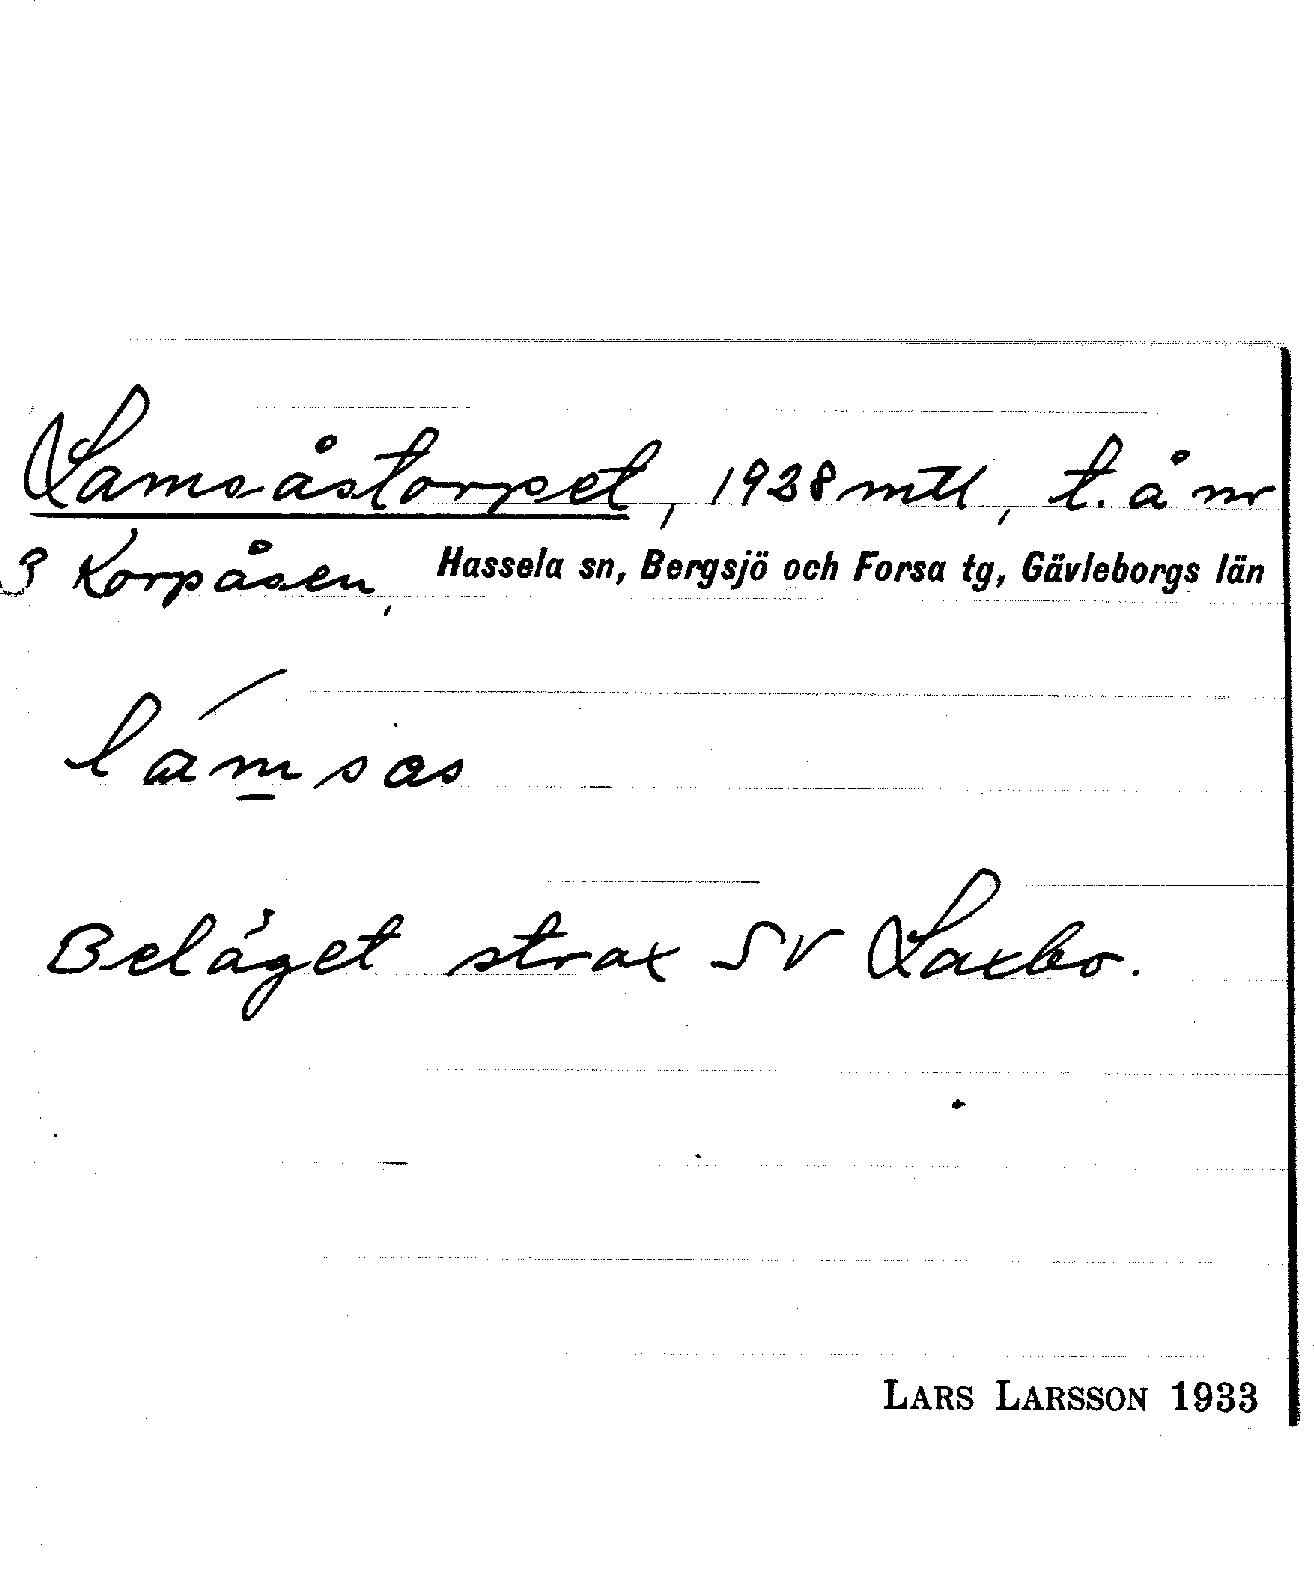 Lamsåstorpet, 1928 mtl, t. å nr
3 Korpåsen, Hassela sn, Bergsjö och Forsa tg, Gävleborgs län
lámsas
Beläget strax SV Laxbo.
LARS LARSSON 1933